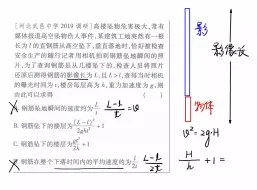 [河北武邑中学2019调研] 高楼坠物危害极大,常有
媒体报道高空坠物伤人事件,某建筑工地突然有一根
长为l的直钢筋从高空坠下,垂直落地时,恰好被检查
安全生产的随行记者用相机拍到钢筋坠地瞬间的照
片,为了查询钢筋是从几楼坠下的,检查人员将照片
还原后测得钢筋的影像长为L,且L>l,查得当时相机
的曝光时间为t,楼房每层高为h,重力加速度为g,则
由此可以求得
A. 钢筋坠地瞬间的速度约为 L/t
L-l/t = v
B. 钢筋坠下的楼层为 (L-l)²/2ght² + 1
C. 钢筋坠下的楼层为
D. 钢筋在整个下落时间内的平均速度约为 l/2t
L-l/2t
影
影像长
物体
v²=2g·H
H/h + 1 =